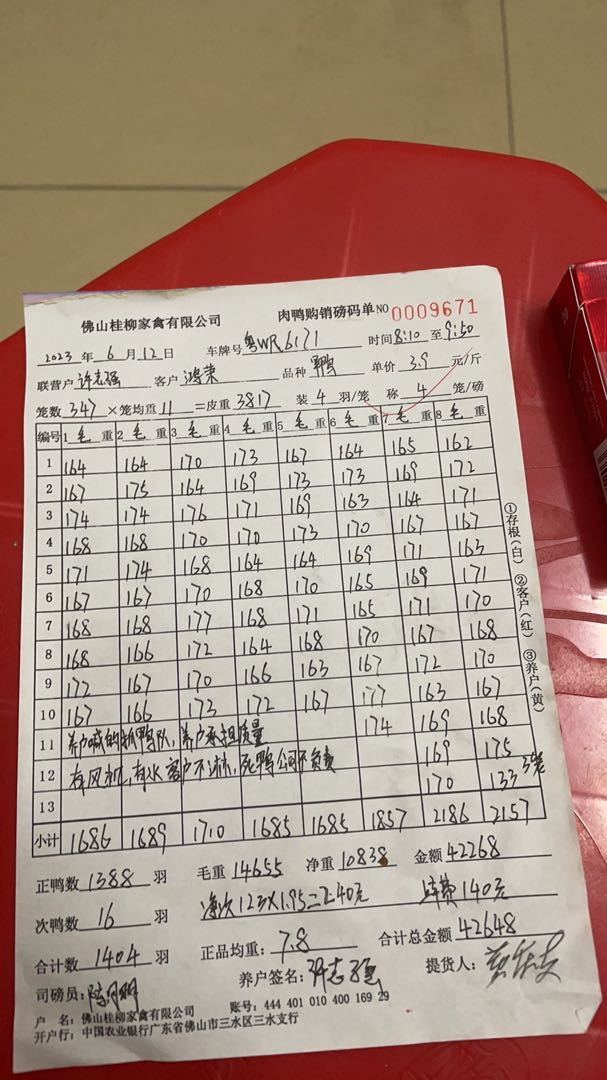 佛山桂柳家禽有限公司 肉鸭购销磅码单 NO 0009671
2023 年 6 月 12 日 车牌号 粤WR6171 时间 8:10 至 9:50
联营户 许志强 客户 鸿荣 品种 鸭 单价 3.9 元/斤
笼数 347 ×笼均重 11 =皮重 3817 装 4 羽/笼 称 4 笼/磅
编号 1 毛 重 2 毛 重 3 毛 重 4 毛 重 5 毛 重 6 毛 重 7 毛 重 8 毛 重
1 164 164 170 173 167 164 165 162
2 167 175 164 169 173 173 169 172
3 174 174 176 171 169 163 164 171
4 168 168 170 170 173 170 167 167
5 171 174 168 164 164 169 171 163
6 167 167 170 168 170 165 169 171
7 168 168 177 168 171 165 171 170
8 168 166 172 164 168 170 167 168
9 172 167 170 166 163 167 172 170
10 167 166 173 172 167 177 163 167
11 养户喊的抓鸭队，养户承担质量 174 169 168
12 有风机，有水客户不淋，死鸭公司不负责 169 175
13 170 133 3笼
小计 1686 1689 1710 1685 1685 1857 2186 2157
①存根（白） ②客户（红） ③养户（黄）
正鸭数 1388 羽 毛重 14655 净重 10838 金额 42268
次鸭数 16 羽 净次123×1.95=240元 140元
合计数 1404 羽 正品均重： 7.8 合计总金额 42648
司磅员： 养户签名： 许志强 提货人：
户 名：佛山桂柳家禽有限公司 账号：444 401 010 400 169 29
开户行：中国农业银行广东省佛山市三水区三水支行